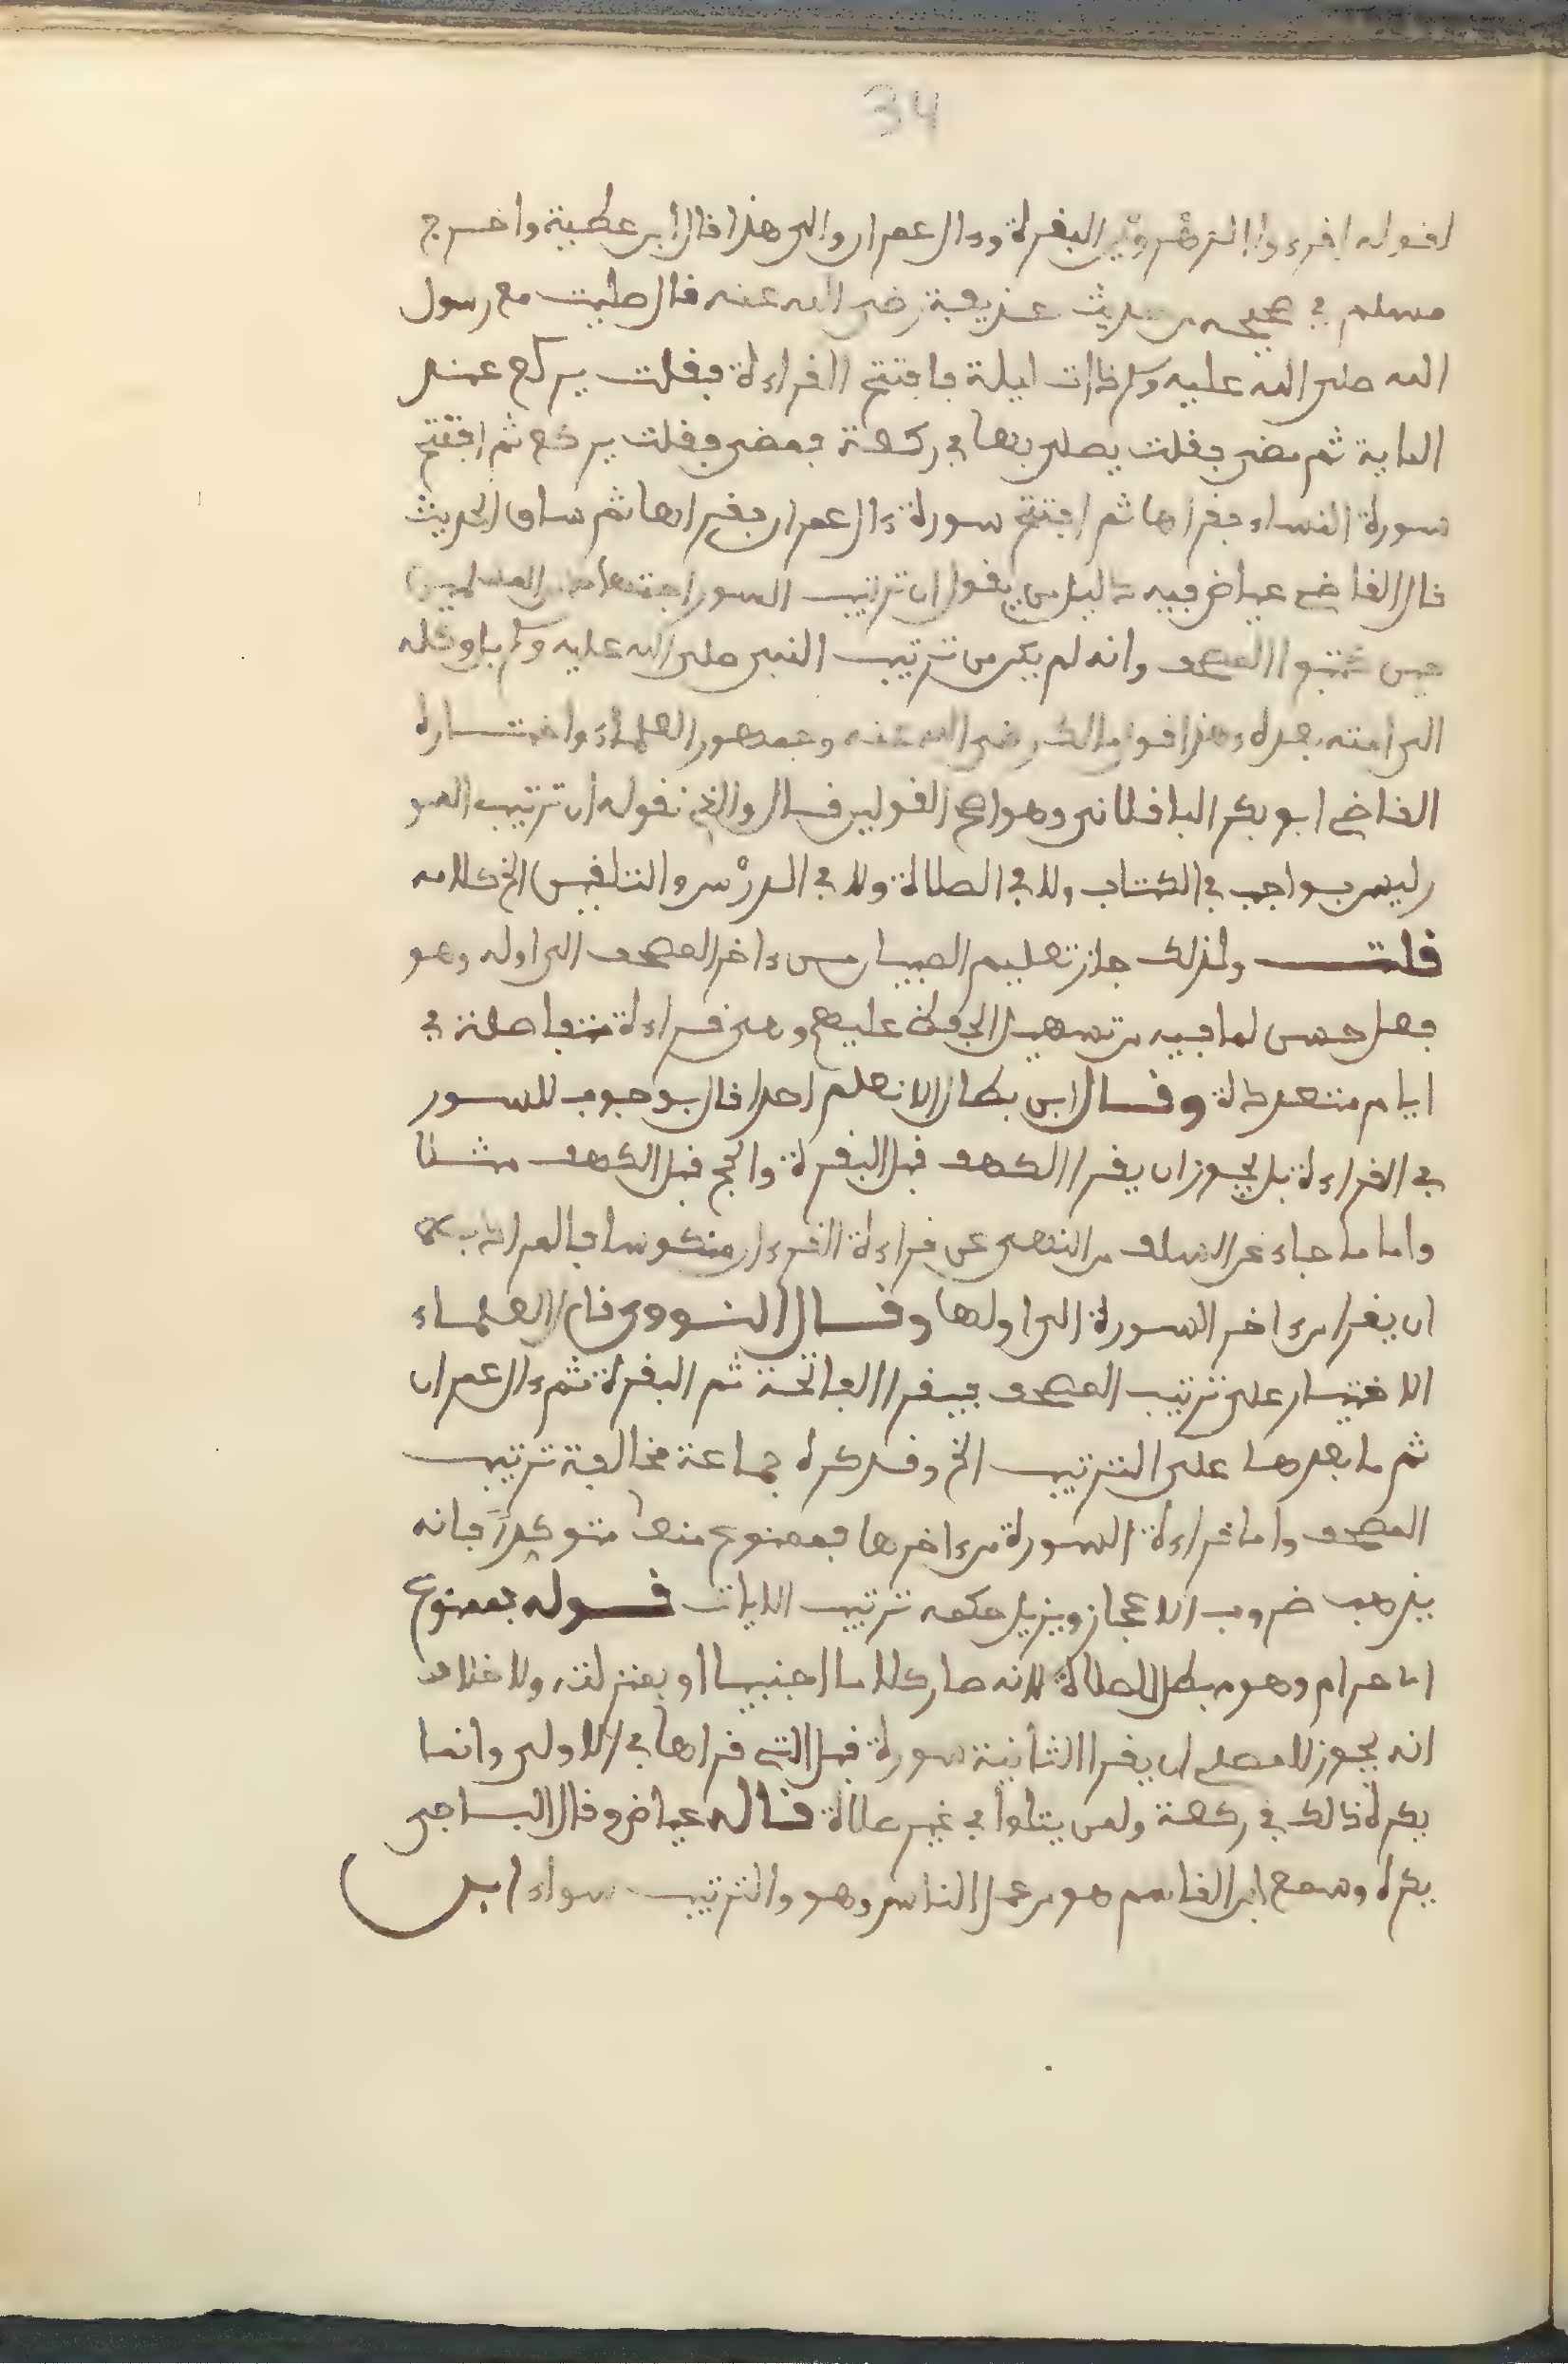 34
لقوله اقرءوا الزهروين البقرة وءال عمران والى هذا قال ابن عطية واخرج
مسلم في صحيحه من حديث حذيفة رضى الله عنه قال صليت مع رسول
الله صلى الله عليه وسلم ذات ليلة فافتتح القراءة فقلت يركع عند
الماية ثم مضى فقلت يصلى بها في ركعة فمضى فقلت يركع ثم افتتح
سورة النساء فقراها ثم افتتح سورة ءال عمران فقراها ثم ساق الحديث
قال القاضي عياض فيه دليل من يقول ان ترتيب السور اجتهاد من المسلمين
حين كتبوا المصحف وانه لم يكن من ترتيب النبي صلى الله عليه وسلم بل وكله
الى امته بعده وهذا قول مالك رضى الله عنه وجمهور العلماء واختاره
القاضي ابو بكر الباقلاني وهو اصح القولين قال والذي نقوله ان ترتيب السو
ر ليس بواجب في الكتاب ولا في الصلاة ولا في الدرْس والتلقين الخ كلامه
قلت ولذلك جاز تعليم الصبيان من ءاخر المصحف الى اوله وهو
فعل حسن لما فيه من تسهيل الحفظ عليهم وهي قراءة متفاصلة في
ايام متعددة وقال ابن بطال لا نعلم احدا قال بوجوب للسور
في القراءة بل يجوز ان يقرا الكهف قبل البقرة والحج قبل الكهف مثلا
واما ما جاء عن السلف من النهى عن قراءة القرءان منكوسا فالمراد به
ان يقرا من ءاخر السورة الى اولها وقال النووى قال العلماء
الاختيار على ترتيب المصحف فيقرا الفاتحة ثم البقرة ثم ءال عمران
ثم ما بعدها على الترتيب الخ وقد كره جماعة مخالفة ترتيب
المصحف واما قراءة السورة من ءاخرها فممنوع منعا متوكدًا فانه
يذهب ضروب الاعجاز ويزيل حكمه ترتيب الايات قوله فممنوع
اى حرام وهو مبطل للصلاة لانه صار كلاما اجنبيا او بمنزلته ولا خلاف
انه يجوز للمصلي ان يقرا الثانية سورة قبل التي قراها في الاولى وانما
يكره ذلك في ركعة ولمن يتلوا في غير صلاة قاله عياض وقال الباجى
يكره وسمع ابن القاسم هو من عمل الناس وهو والترتيب سواء ابن